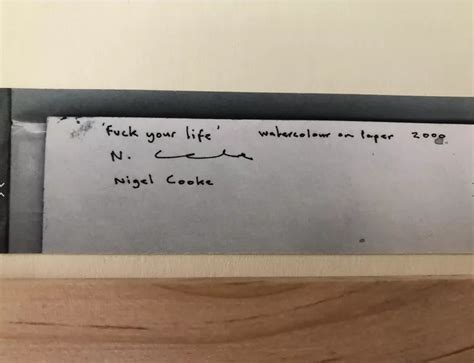 'fuck your life' watercolour on paper 2000
N. Cooke
Nigel Cooke